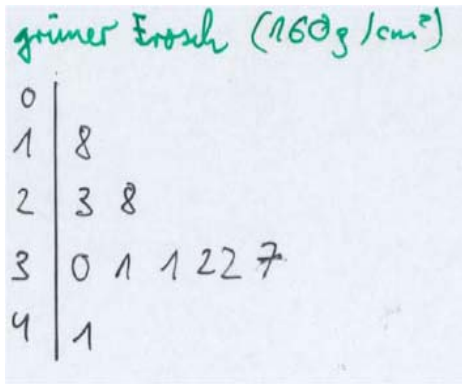 grüner Frosch (160g/cm²)
0 |
1 | 8
2 | 3 8
3 | 0 1 1 2 2 7
4 | 1